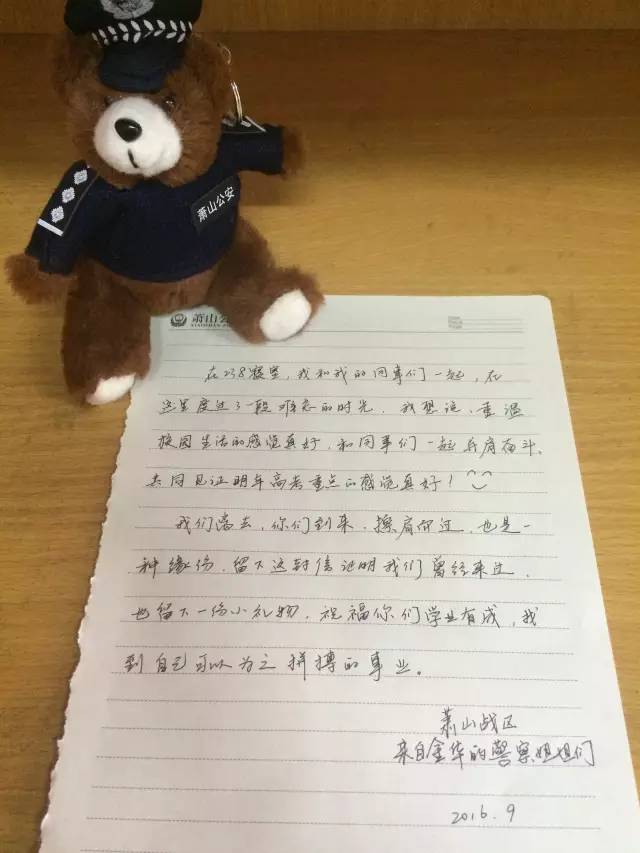 萧山公安
萧山公
在238寝室,我和我的同事们一起,在
这里度过了一段难忘的时光。我想说,重温
校园生活的感觉真好,和同事们一起并肩奋斗、
共同见证明年高考重点的感觉真好!
我们离去,你们到来,擦肩而过,也是一
种缘份,留下这封信证明我们曾经来过,
也留下一份小礼物,祝福你们学业有成,找
到自己可以为之拼搏的事业。
萧山战区
来自金华的警察姐姐们
2016.9